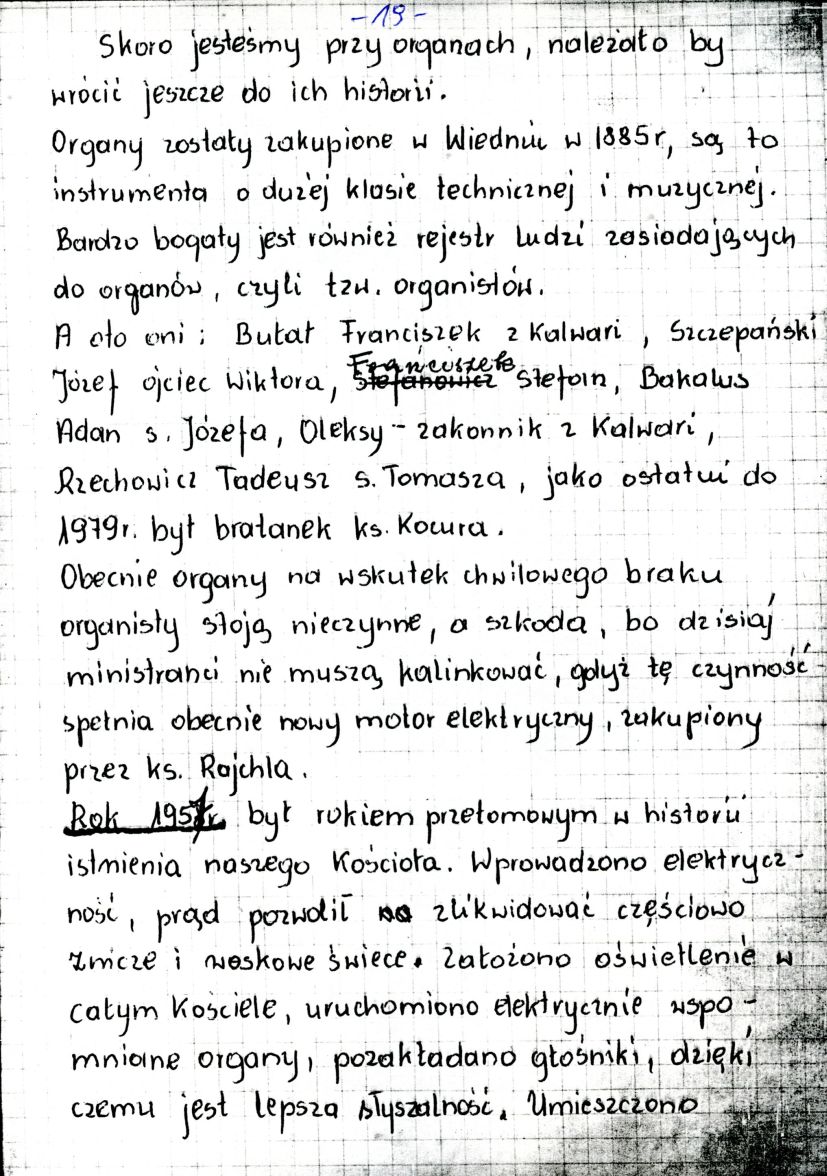 - 19 -
Skoro jesteśmy przy organach, należało by
wrócić jeszcze do ich historii.
Organy zostały zakupione w Wiedniu w 1885r, są to
instrumenta o dużej klasie technicznej i muzycznej.
Bardzo bogaty jest również rejestr ludzi zasiadających
do organów, czyli tzw. organistów.
A oto oni : Butat Franciszek z Kalwari, Szczepański
Józef ojciec Wiktora, Franciszek Stefan, Bakalus
Adan s. Józefa, Oleksy - zakonnik z Kalwari,
Rzechowicz Tadeusz s. Tomasza, jako ostatni do
1979r. był bratanek ks. Kocura.
Obecnie organy na wskutek chwilowego braku
organisty stoją nieczynne, a szkoda, bo dzisiaj
ministranci nie muszą kalinkować, gdyż tę czynność
spełnia obecnie nowy motor elektryczny, zakupiony
przez ks. Rajchla.
Rok 1957r. był rokiem przełomowym w historii
istnienia naszego Kościoła. Wprowadzono elektrycz-
ność, prąd pozwolił zlikwidować częściowo
znicze i woskowe świece. Założono oświetlenie w
całym Kościele, uruchomiono elektrycznie wspo-
mniane organy, pozakładano głośniki, dzięki
czemu jest lepsza słyszalność. Umieszczono